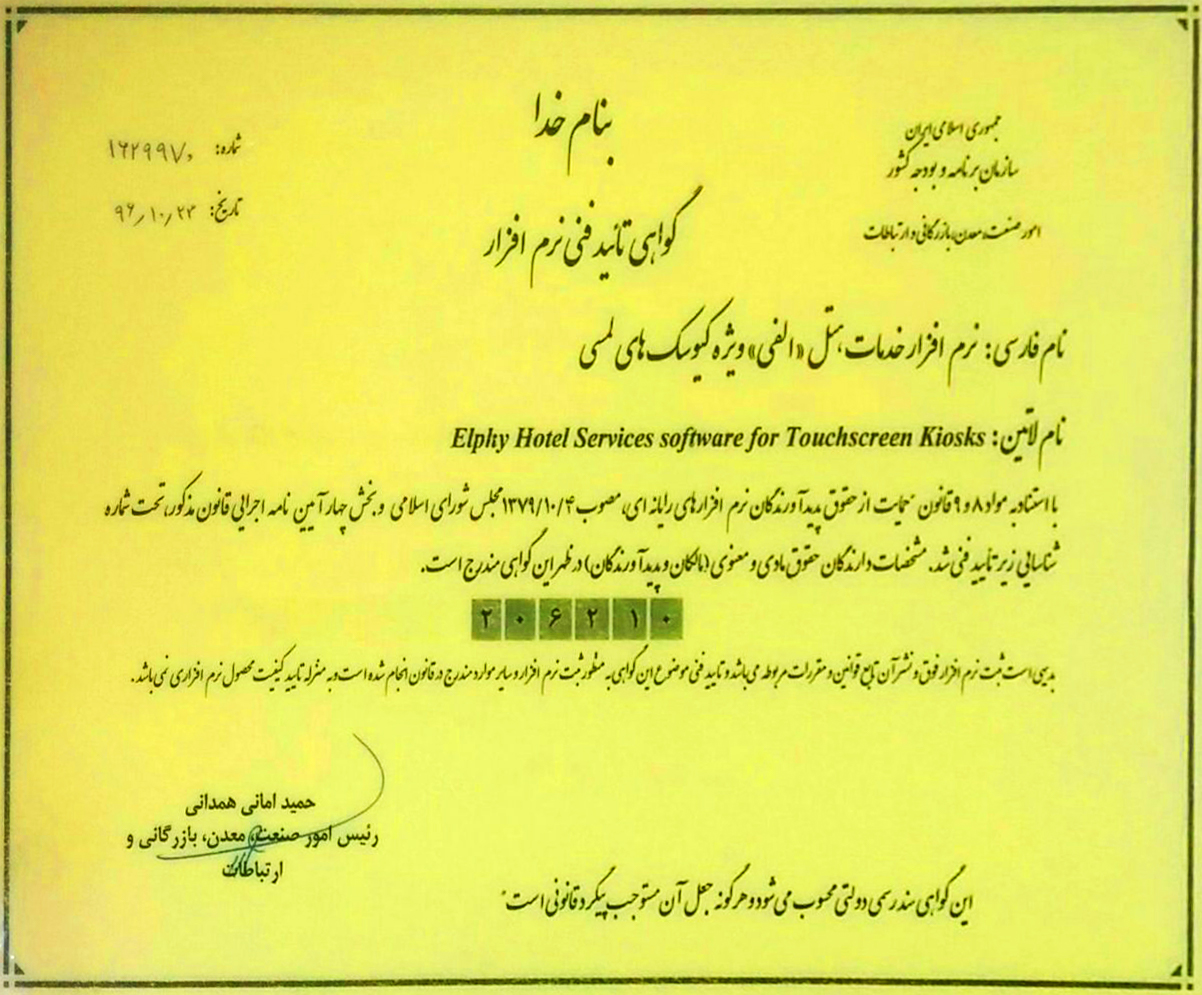 بنام خدا
جمهوری اسلامی ایران
سازمان برنامه و بودجه کشور
امور صنعت، معدن، بازرگانی و ارتباطات
شماره: ۱۶۲۹۹۷۰
تاریخ: ۹۶/۱۰/۲۳
گواهی تائید فنی نرم افزار
نام فارسی: نرم افزار خدمات هتل «الفی» ویژه کیوسک های لمسی
نام لاتین: Elphy Hotel Services software for Touchscreen Kiosks
با استناد به مواد ۸ و ۹ قانون حمایت از حقوق پدیدآورندگان نرم افزارهای رایانه ای، مصوب ۱۳۷۹/۱۰/۴ مجلس شورای اسلامی و بخش چهار آیین نامه اجرایی قانون مذکور، تحت شماره
شناسایی زیر تأیید فنی شد. مشخصات دارندگان حقوق مادی و معنوی (مالکان و پدیدآورندگان) در ظهر این گواهی مندرج است.
۲۰۶۲۱۰
بدیهی است ثبت نرم افزار فوق و نشر آن تابع قوانین و مقررات مربوطه می باشد و تایید فنی موضوع این گواهی به منظور ثبت نرم افزار و سایر موارد مندرج در قانون انجام شده است و به منزله تایید کیفیت محصول نرم افزاری نمی باشد.
حمید امانی همدانی
رئیس امور صنعت، معدن، بازرگانی و
ارتباطات
این گواهی سند رسمی دولتی محسوب می شود و هرگونه جعل آن مستوجب پیگرد قانونی است"